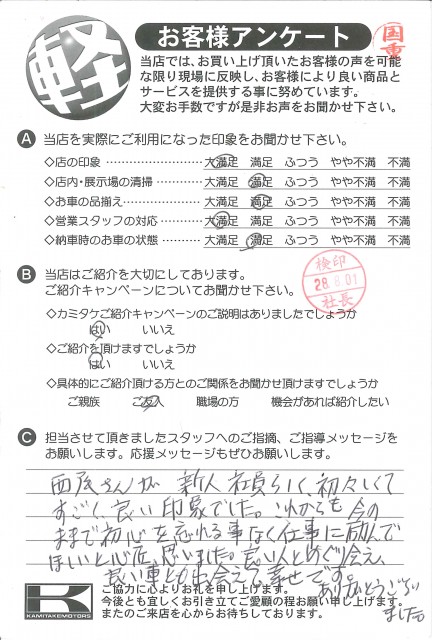 軽
お客様アンケート
国重
当店では、お買い上げ頂いたお客様の声を可能
な限り現場に反映し、お客様により良い商品と
サービスを提供する事に努めています。
大変お手数ですが是非お声をお聞かせ下さい。
A 当店を実際にご利用になった印象をお聞かせ下さい。
◇店の印象 ………………… 大満足 満足 ふつう やや不満 不満
◇店内・展示場の清掃………… 大満足 満足 ふつう やや不満 不満
◇お車の品揃え……………… 大満足 満足 ふつう やや不満 不満
◇営業スタッフの対応………… 大満足 満足 ふつう やや不満 不満
◇納車時のお車の状態………… 大満足 満足 ふつう やや不満 不満
B 当店はご紹介を大切にしております。
ご紹介キャンペーンについてお聞かせ下さい。
検印
28.8.01
社長
◇カミタケご紹介キャンペーンのご説明はありましたでしょうか
はい いいえ
◇ご紹介を頂けますでしょうか
はい いいえ
◇具体的にご紹介頂ける方とのご関係をお聞かせ頂けますでしょうか
ご親族 ご友人 職場の方 機会があれば紹介したい
C 担当させて頂きましたスタッフへのご指摘、ご指導メッセージを
お願いします。応援メッセージもぜひお願いします。
西尾さんが 新人社員らしく、初々しくて
すごく、良い印象でした。これからも今の
ままで初心を忘れる事なく仕事に励んで
ほしいと心底、思いました。良い人とめぐり会え、
良い車とも出会えて幸せです。
ありがとうござい
ました。
K
KAMITAKEMOTORS
ご協力に心よりお礼を申し上げます。
今後とも宜しくお引き立てご愛顧の程お願い申し上げます。
またのご来店を心からお待ちしております。